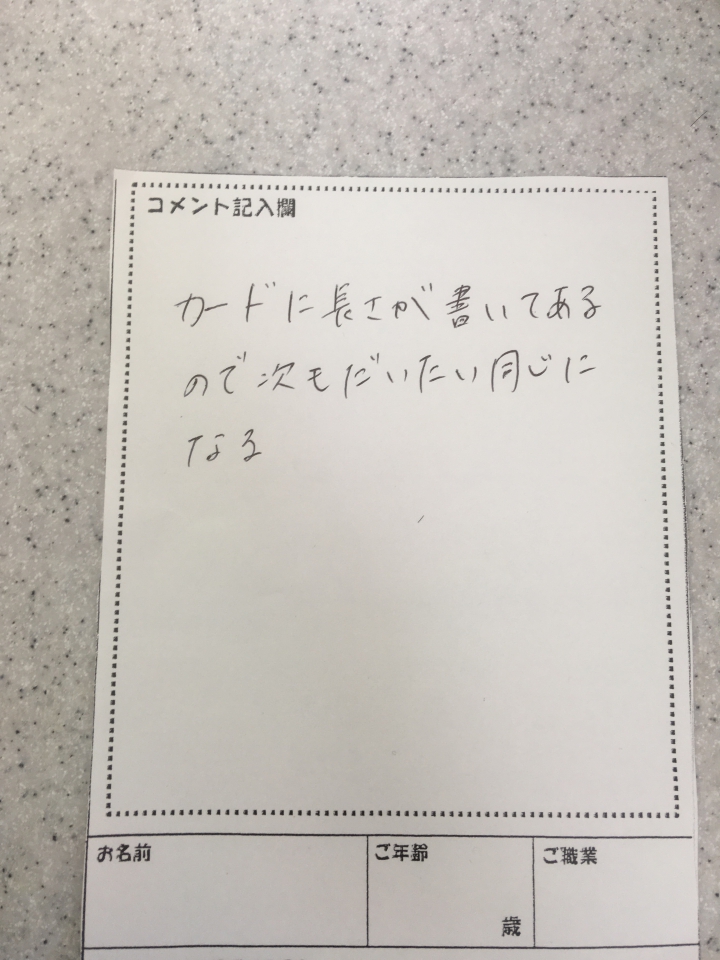 コメント記入欄
カードに長さが書いてある
ので次もだいたい同じに
なる
お名前
ご年齢
歳
ご職業